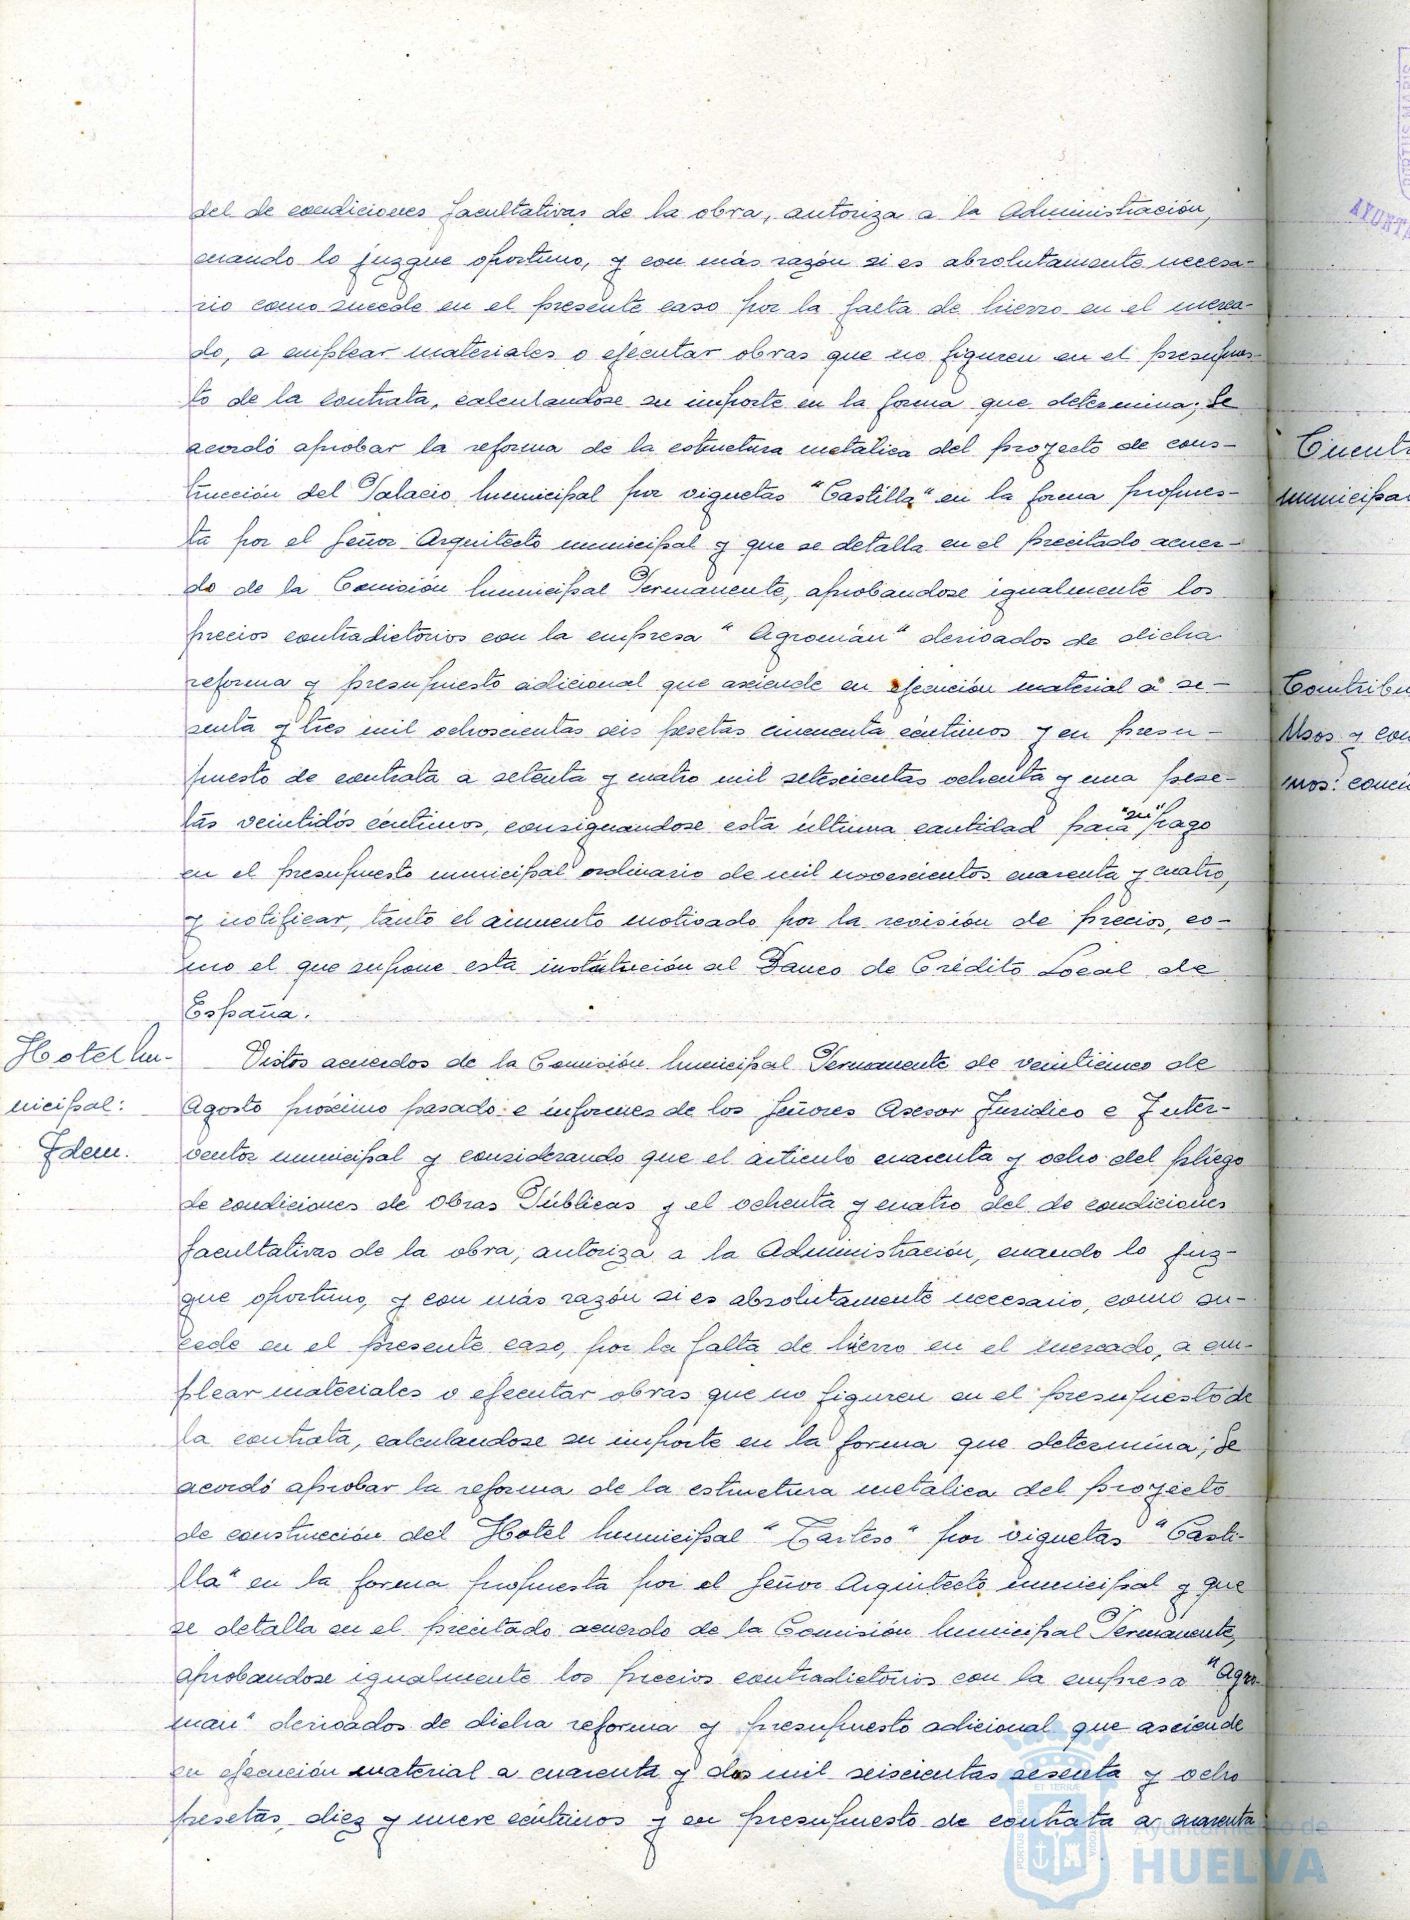 del de condiciones facultativas de la obra, autoriza a la Administración,
cuando lo juzgue oportuno, y con más razón si es absolutamente necesa-
rio como sucede en el presente caso por la falta de hierro en el merca-
do, a emplear materiales o ejecutar obras que no figuren en el presupues-
to de la contrata, calculandose su importe en la forma que determina; Se
acordó aprobar la reforma de la estructura metálica del proyecto de cons-
trucción del Palacio Municipal por viguetas "Castilla" en la forma propues-
ta por el Señor Arquitecto municipal y que se detalla en el precitado acuer-
do de la Comisión Municipal Permanente, aprobandose igualmente los
precios contradictorios con la empresa "Agromán" derivados de dicha
reforma y presupuesto adicional que asciende en ejecución material a se-
senta y tres mil ochoscientas seis pesetas cincuenta céntimos y en presu-
puesto de contrata a setenta y cuatro mil setescientas ochenta y una pese-
tas veintidós céntimos, consignandose esta última cantidad para "su" pago
en el presupuesto municipal ordinario de mil novescientos cuarenta y cuatro,
y notificar, tanto el aumento motivado por la revisión de precios, co-
mo el que supone esta institución al Banco de Crédito Local de
España.
Hotel Mu-
nicipal:
Idem.
Vistos acuerdos de la Comisión Municipal Permanente de veinticinco de
Agosto próximo pasado e informes de los Señores Asesor Jurídico e Inter-
ventor municipal y considerando que el artículo cuarenta y ocho del pliego
de condiciones de Obras Públicas y el ochenta y cuatro del de condiciones
facultativas de la obra, autoriza a la Administración, cuando lo juz-
gue oportuno, y con más razón si es absolutamente necesario, como su-
cede en el presente caso, por la falta de hierro en el mercado, a em-
plear materiales o ejecutar obras que no figuren en el presupuesto de
la contrata, calculandose su importe en la forma que determina; Se
acordó aprobar la reforma de la estructura metálica del proyecto
de construcción del Hotel Municipal "Tarteso" por viguetas "Casti-
lla" en la forma propuesta por el Señor Arquitecto municipal y que
se detalla en el precitado acuerdo de la Comisión Municipal Permanente,
aprobandose igualmente los precios contradictorios con la empresa "Agro-
man" derivados de dicha reforma y presupuesto adicional que asciende
en ejecución material a cuarenta y dos mil seiscientas sesenta y ocho
pesetas, diez y nueve céntimos y en presupuesto de contrata a cuarenta
Ayuntamiento de
HUELVA